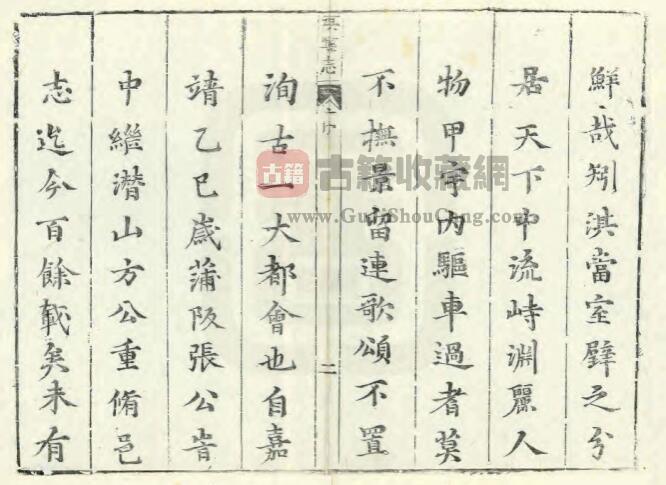 鮮哉矧淇當室壁之分
居天下中流峙淵麗人
物甲宇內驅車過者莫
不撫景留連歌頌不置
淇縣志
序
二
洵古一大都會也自嘉
靖乙巳歲蒲阪張公肯
中繼潜山方公重脩邑
志迄今百餘載矣未有
古籍
古籍收藏網
www.GuJiShouCang.com